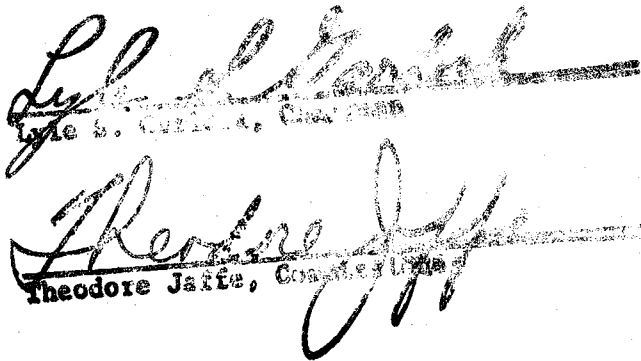 Lyle S.
Lyle S. Chairman
Theodore Jaffe
Theodore Jaffe, Commissioner